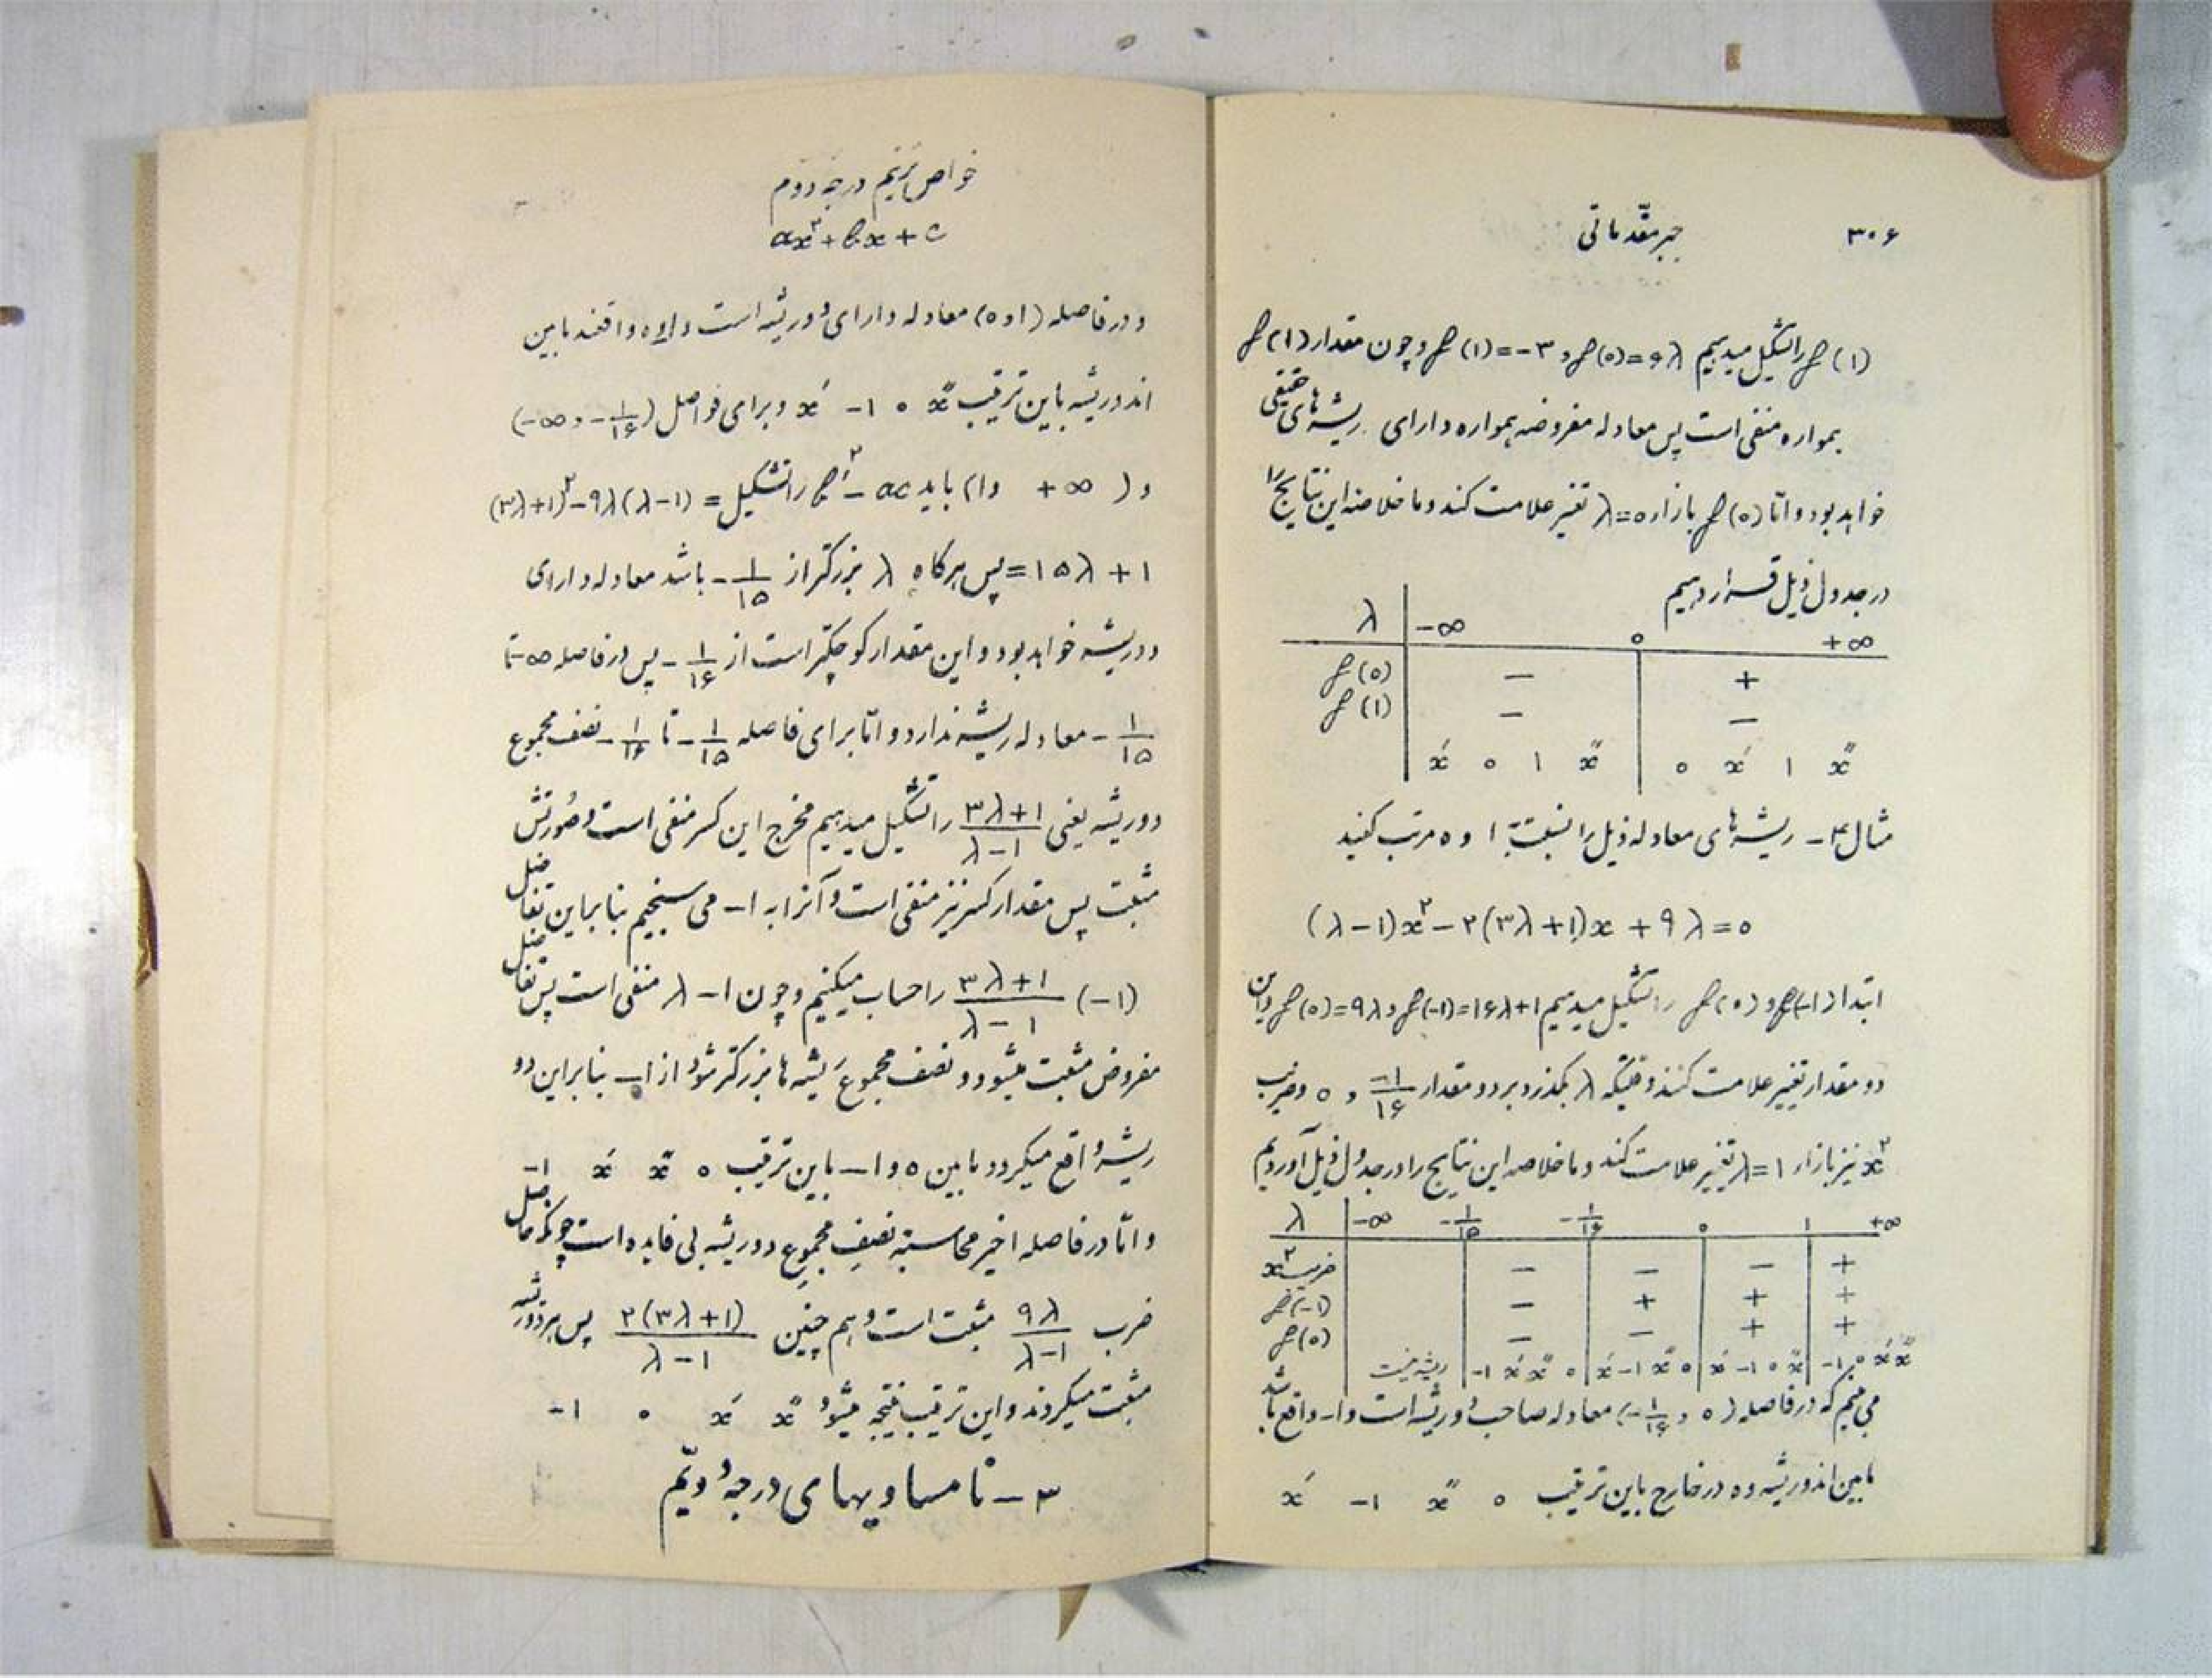 ۳۰۶ جبر مقدّماتی
f(1) را تشکیل میدهیم f(0)=۶λ و f(1)=-۳ و چون مقدار f(1)
همواره منفی است پس معادله مفروضه همواره دارای ریشه‌های حقیقی
خواهد بود و امّا f(0) بازاء λ=0 تغییر علامت کند و ما خلاصه این نتایج را
در جدول ذیل قرار دهیم
λ | -∞ 0 +∞
f(0) | − | +
f(1) | − | −
x′ 0 1 x″ | 0 x′ 1 x″
مثال ۴ـ ریشه‌های معادله ذیل را نسبت به ۱ و 0 مرتب کنید
(λ-1)x²-۲(۳λ+1)x+۹λ=0
ابتدا f(-1) و f(0) را تشکیل میدهیم f(-1)=1۶λ+1 و f(0)=۹λ و این
دو مقدار تغییر علامت کنند وقتیکه λ بگذرد بر دو مقدار -1/1۶ و 0 و ضریب
x² نیز بازاء λ=1 تغییر علامت کند و ما خلاصه این نتایج را در جدول ذیل آوردیم
λ | -∞ -1/1۵ -1/1۶ 0 1 +∞
ضریب x² | − | − | − | +
f(-1) | − | + | + | +
f(0) | − | − | + | +
ریشه نیست | -1 x′ x″ 0 | x′ -1 x″ 0 | x′ -1 0 x″ | -1 0 x′ x″
می‌بینیم که در فاصله (0 و -1/1۶) معادله صاحب دو ریشه است و ۱ـ واقع باشد
مابین اندو ریشه و 0 در خارج باین ترتیب 0 x″ -1 x′
خواص ترینم درجه دوم
ax²+bx+c
و در فاصله (1 و 0) معادله دارای دو ریشه است و ۱ـ و 0 واقعند مابین
اندو ریشه باین ترتیب x″ 0 -1 x′ و برای فواصل (-∞ و -1/1۶)
و (+∞ و 1) باید b′²-ac را تشکیل = (۳λ+1)²-۹λ(λ-1)
=1۵λ+1 پس هرگاه λ بزرگتر از -1/1۵ باشد معادله دارای
دو ریشه خواهد بود و این مقدار کوچکتر است از -1/1۶ پس در فاصله -∞ تا
-1/1۵ معادله ریشه ندارد و امّا برای فاصله -1/1۵ تا -1/1۶ نصف مجموع
دو ریشه یعنی (۳λ+1)/(λ-1) را تشکیل میدهیم مخرج این کسر منفی است و صورتش
مثبت پس مقدار کسر نیز منفی است و آنرا به ۱ـ می سنجیم بنابراین تفاضل
(-1) (۳λ+1)/(λ-1) را حساب میکنیم و چون λ-1 منفی است پس تفاضل
مفروض مثبت میشود و نصف مجموع ریشه‌ها بزرگتر شود از ۱ـ بنابراین دو
ریشه واقع میگردد مابین 0 و ۱ـ باین ترتیب 0 x″ x′ -1
و امّا در فاصله اخیر محاسبه نصف مجموع دو ریشه بی فایده است چونکه حاصل
ضرب ۹λ/(λ-1) مثبت است و هم چنین ۲(۳λ+1)/(λ-1) پس هر دو ریشه
مثبت میگردند و این ترتیب نتیجه میشود x″ x′ 0 -1
۳ـ نامساویهای درجه دویّم